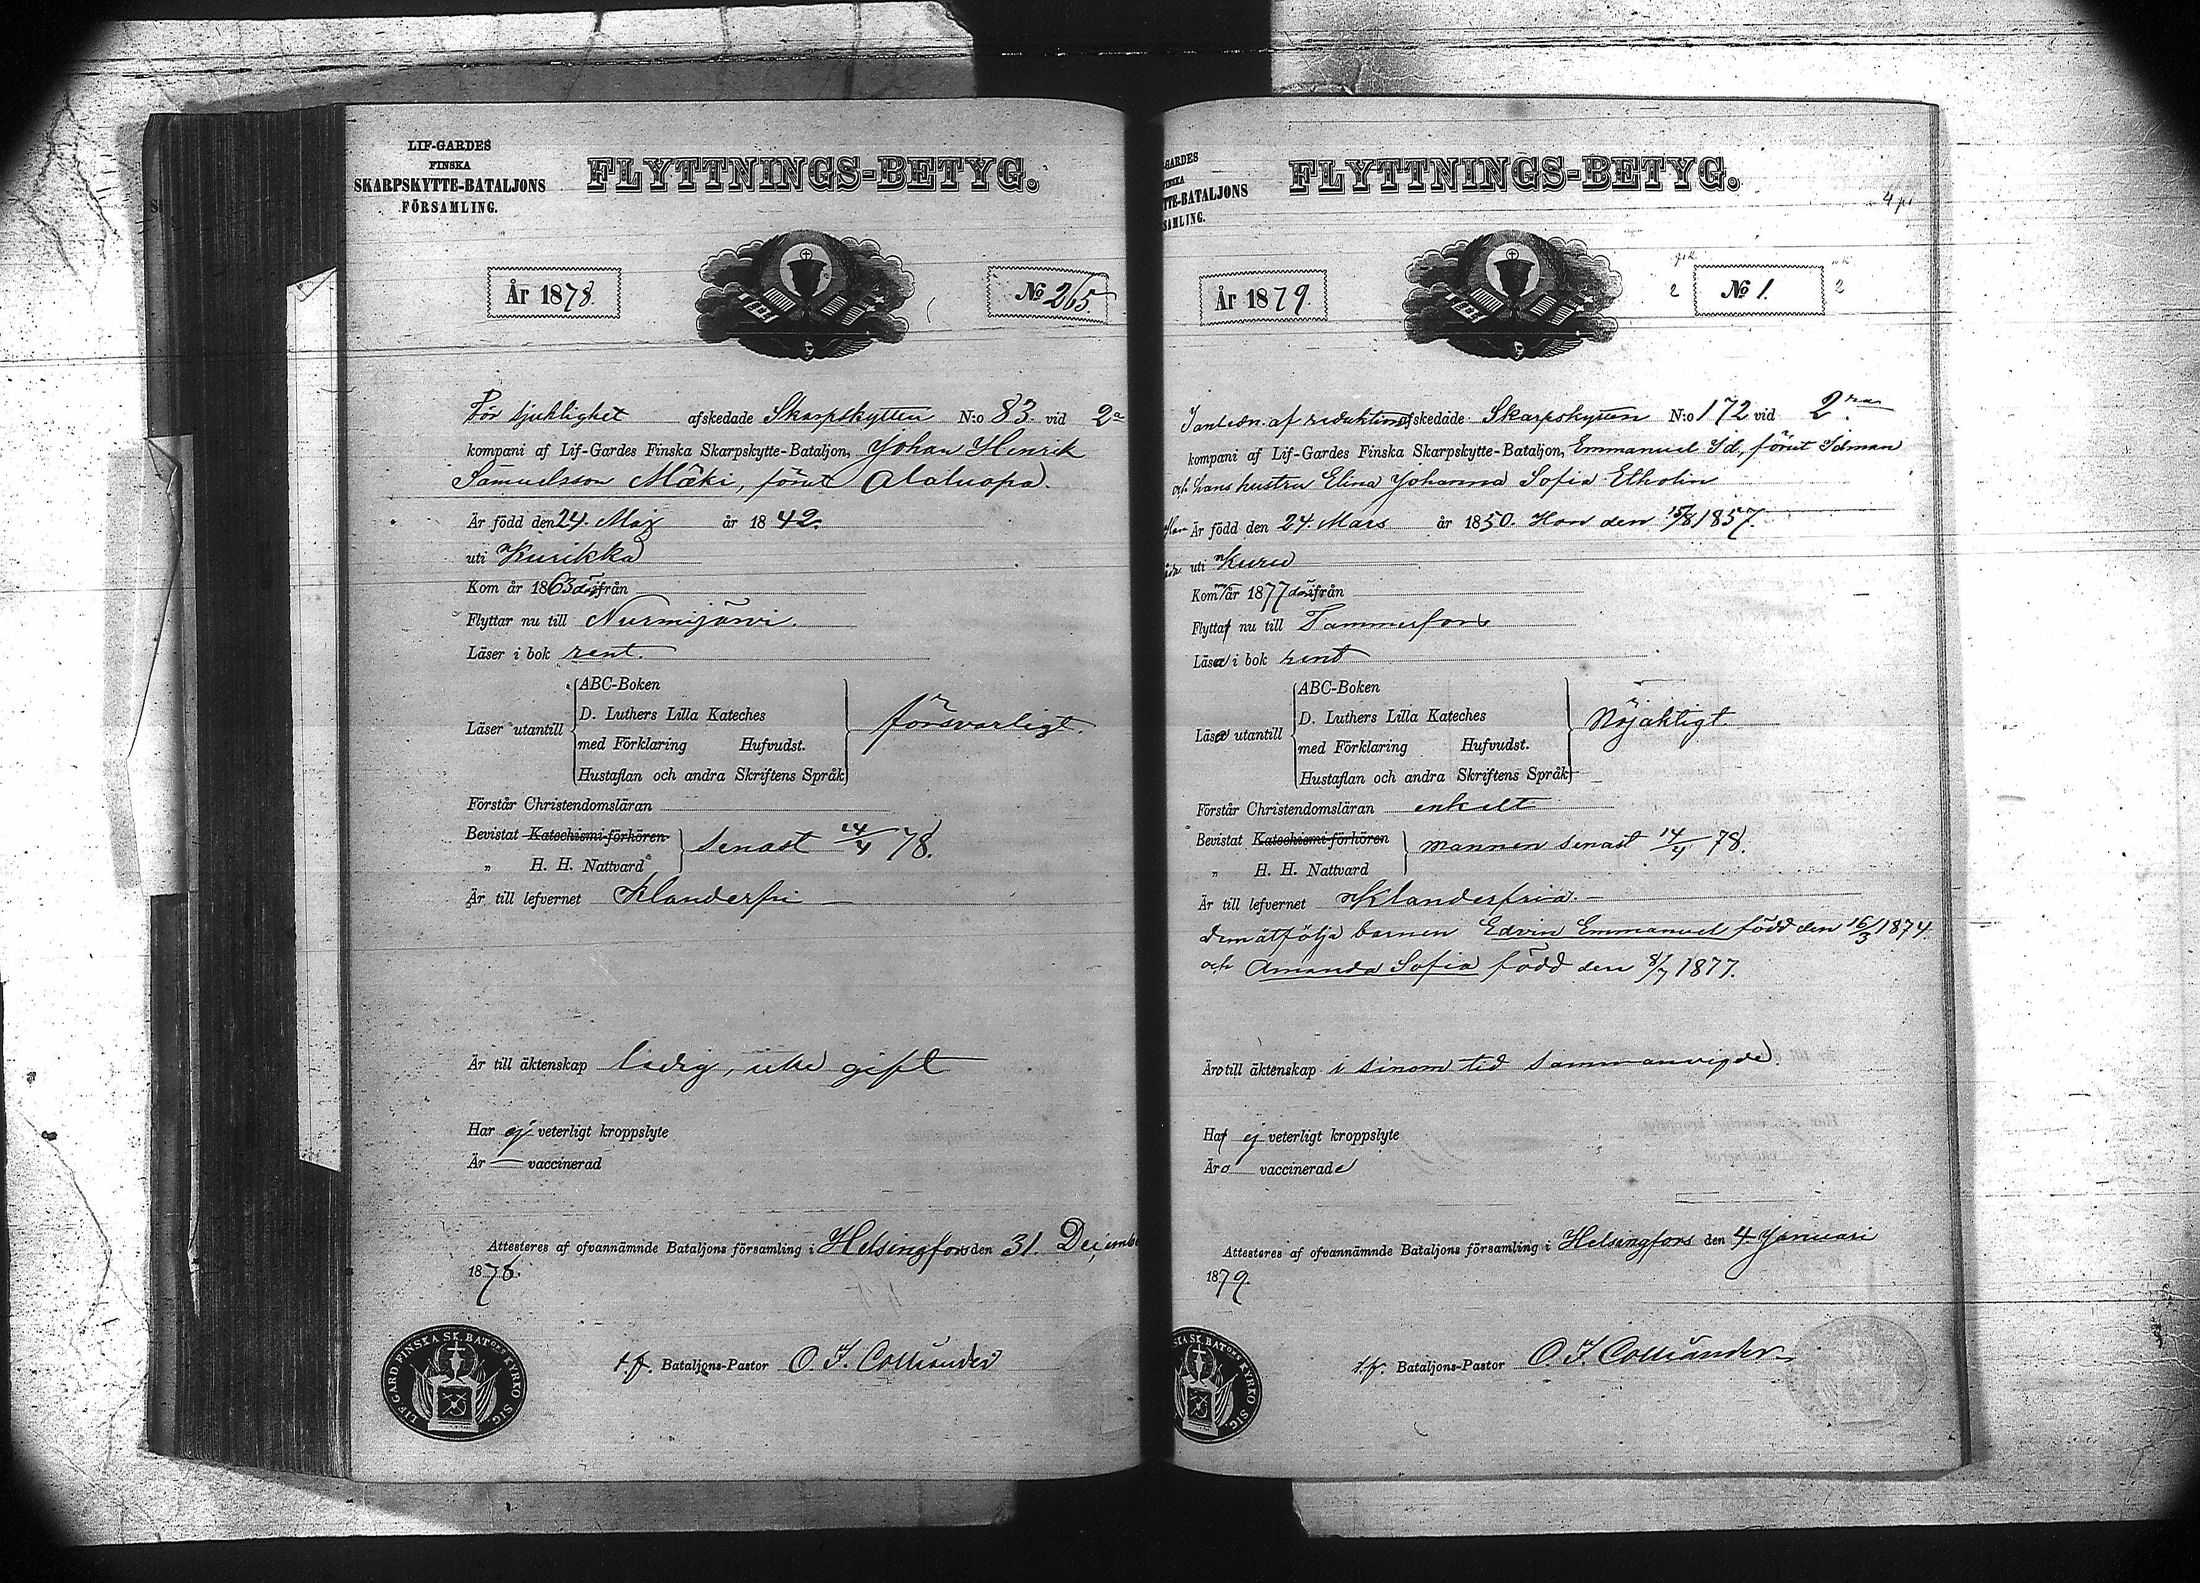 LIF-GARDES
FINSKA
SKARPSKYTTE-BATALJONS
FÖRSAMLING.
FLYTTNINGS-BETYG.
År 1878.
No 265.
För sjuklighet afskedade Skarpskytten N:o 83 vid 2a
kompani af Lif-Gardes Finska Skarpskytte-Bataljon, Johan Henrik
Samuelsson Mäki, förut Alaluopa.
Är född den 24. Maj år 1842.
uti Kurikka
Kom år 1863 difrån
Flyttar nu till Nurmijärvi.
Läser i bok rent.
Läser utantill
ABC-Boken
D. Luthers Lilla Kateches
med Förklaring Hufvudst.
Hustaflan och andra Skriftens Språk
försvarligt.
Förstår Christendomsläran
Bevistat Katechismi-förhören
„ H. H. Nattvard
senast 14/4 78.
Är till lefvernet Klanderfri —
Är till äktenskap ledig, icke gift
Har ej veterligt kroppslyte
Är — vaccinerad
Attesteres af ofvannämnde Bataljons församling i Helsingfors den 31. Decembe
1878.
t.f. Bataljons-Pastor O. I. Colliander
LIF GARD. FINSKA SK. BATONS KYRKO SIG.
GARDES
TTE-BATALJONS
SAMLING.
FLYTTNINGS-BETYG.
År 1879.
2 No 1. 2
I anledn. af reduktion afskedade Skarpskytten N:o 172 vid 2ra
kompani af Lif-Gardes Finska Skarpskytte-Bataljon, Emmanuel Id, förut Idman
och hans hustru Elina Johanna Sofia Etholin
Är född den 24 Mars år 1850. Hon den 15/8 1857.
uti Kuru
Kom år 1877 difrån
Flytta nu till Tammerfors
Läsa i bok rent
Läsa utantill
ABC-Boken
D. Luthers Lilla Kateches
med Förklaring Hufvudst.
Hustaflan och andra Skriftens Språk
Nöjaktigt.
Förstår Christendomsläran enkelt
Bevistat Katechismi-förhören
„ H. H. Nattvard
mannen senast 14/4 78.
Är till lefvernet Klanderfria. —
Dem åtfölja barnen Edvin Emmanuel född den 16/3 1874.
och Amanda Sofia född den 8/7 1877.
Äro till äktenskap i sinom tid sammanvigde.
Ha ej veterligt kroppslyte
Äro vaccinerade
Attesteres af ofvannämnde Bataljons församling i Helsingfors den 4 Januari
1879.
t.f. Bataljons-Pastor O. I. Colliander
SKA SK. BATONS KYRKO SIG.